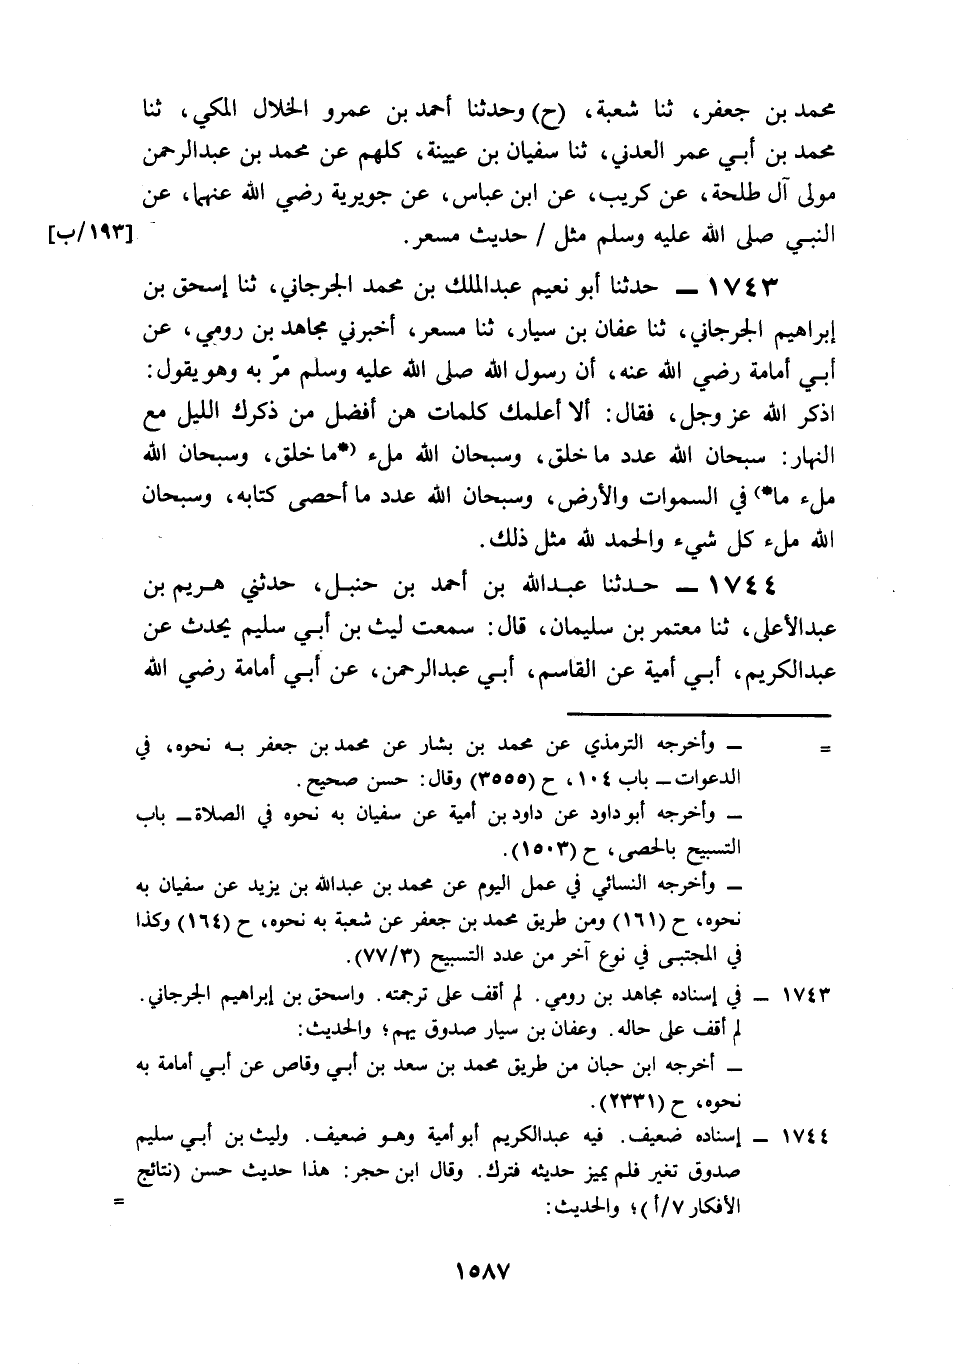 محمد بن جعفر، ثنا شعبة، (ح) وحدثنا أحمد بن عمرو الخلال المكي، ثنا
محمد بن أبي عمر العدني، ثنا سفيان بن عيينة، كلهم عن محمد بن عبدالرحمن
مولى آل طلحة، عن كريب، عن ابن عباس، عن جويرية رضي الله عنها، عن
النبي صلى الله عليه وسلم مثل / حديث مسعر. [١٩٣/ب]
١٧٤٣ – حدثنا أبو نعيم عبدالملك بن محمد الجرجاني، ثنا إسحق بن
إبراهيم الجرجاني، ثنا عفان بن سيار، ثنا مسعر، أخبرني مجاهد بن رومي، عن
أبي أمامة رضي الله عنه، أن رسول الله صلى الله عليه وسلم مرّ به وهو يقول:
اذكر الله عز وجل، فقال: ألا أعلمك كلمات هن أفضل من ذكرك الليل مع
النهار: سبحان الله عدد ما خلق، وسبحان الله ملء (*ما خلق، وسبحان الله
ملء ما*) في السموات والأرض، وسبحان الله عدد ما أحصى كتابه، وسبحان
الله ملء كل شيء والحمد لله مثل ذلك.
١٧٤٤ – حدثنا عبدالله بن أحمد بن حنبل، حدثني هريم بن
عبدالأعلى، ثنا معتمر بن سليمان، قال: سمعت ليث بن أبي سليم يحدث عن
عبدالكريم، أبي أمية عن القاسم، أبي عبدالرحمن، عن أبي أمامة رضي الله
= – وأخرجه الترمذي عن محمد بن بشار عن محمد بن جعفر به نحوه، في
الدعوات – باب ١٠٤، ح (٣٥٥٥) وقال: حسن صحيح.
– وأخرجه أبو داود عن داود بن أمية عن سفيان به نحوه في الصلاة – باب
التسبيح بالحصى، ح (١٥٠٣).
– وأخرجه النسائي في عمل اليوم عن محمد بن عبدالله بن يزيد عن سفيان به
نحوه، ح (١٦١) ومن طريق محمد بن جعفر عن شعبة به نحوه، ح (١٦٤) وكذا
في المجتبى في نوع آخر من عدد التسبيح (٧٧/٣).
١٧٤٣ – في إسناده مجاهد بن رومي. لم أقف على ترجمته. واسحق بن إبراهيم الجرجاني.
لم أقف على حاله. وعفان بن سيار صدوق يهم؛ والحديث:
– أخرجه ابن حبان من طريق محمد بن سعد بن أبي وقاص عن أبي أمامة به
نحوه، ح (٢٣٣١).
١٧٤٤ – إسناده ضعيف. فيه عبدالكريم أبو أمية وهو ضعيف. وليث بن أبي سليم
صدوق تغير فلم يميز حديثه فترك. وقال ابن حجر: هذا حديث حسن (نتائج
الأفكار ٧/أ)؛ والحديث: =
١٥٨٧